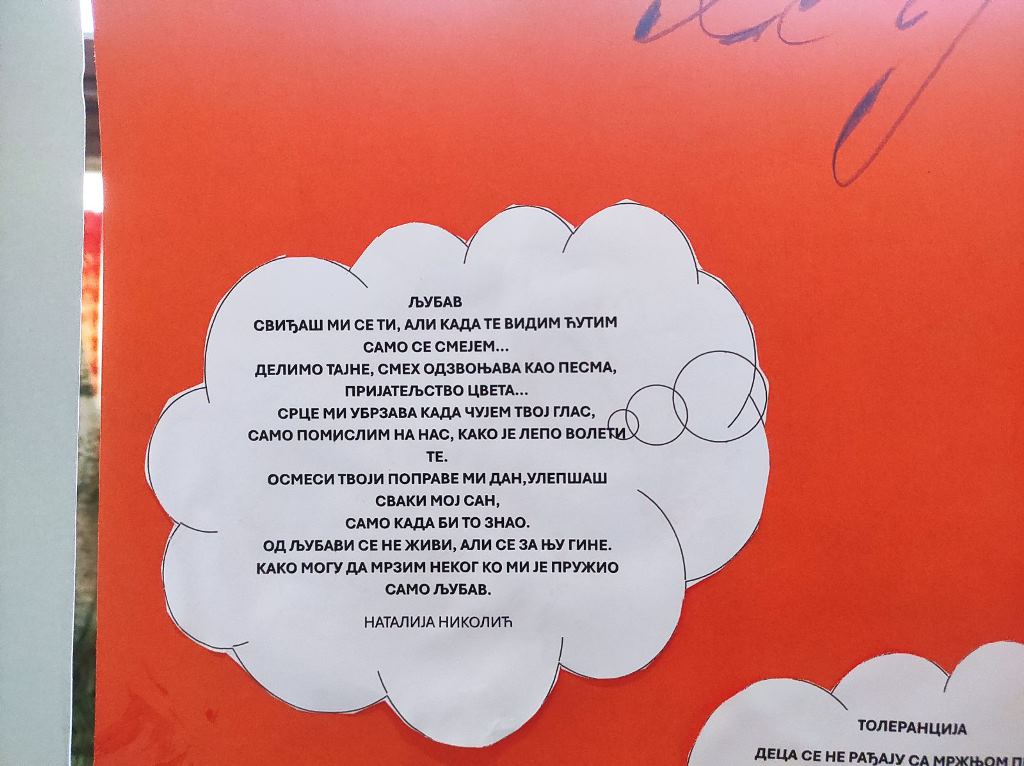 ЉУБАВ
СВИЂАШ МИ СЕ ТИ, АЛИ КАДА ТЕ ВИДИМ ЋУТИМ
САМО СЕ СМЕЈЕМ...
ДЕЛИМО ТАЈНЕ, СМЕХ ОДЗВОЊАВА КАО ПЕСМА,
ПРИЈАТЕЉСТВО ЦВЕТА...
СРЦЕ МИ УБРЗАВА КАДА ЧУЈЕМ ТВОЈ ГЛАС,
САМО ПОМИСЛИМ НА НАС, КАКО ЈЕ ЛЕПО ВОЛЕТИ
ТЕ.
ОСМЕСИ ТВОЈИ ПОПРАВЕ МИ ДАН,УЛЕПШАШ
СВАКИ МОЈ САН,
САМО КАДА БИ ТО ЗНАО.
ОД ЉУБАВИ СЕ НЕ ЖИВИ, АЛИ СЕ ЗА ЊУ ГИНЕ.
КАКО МОГУ ДА МРЗИМ НЕКОГ КО МИ ЈЕ ПРУЖИО
САМО ЉУБАВ.
НАТАЛИЈА НИКОЛИЋ
ТОЛЕРАНЦИЈА
ДЕЦА СЕ НЕ РАЂАЈУ СА МРЖЊОМ